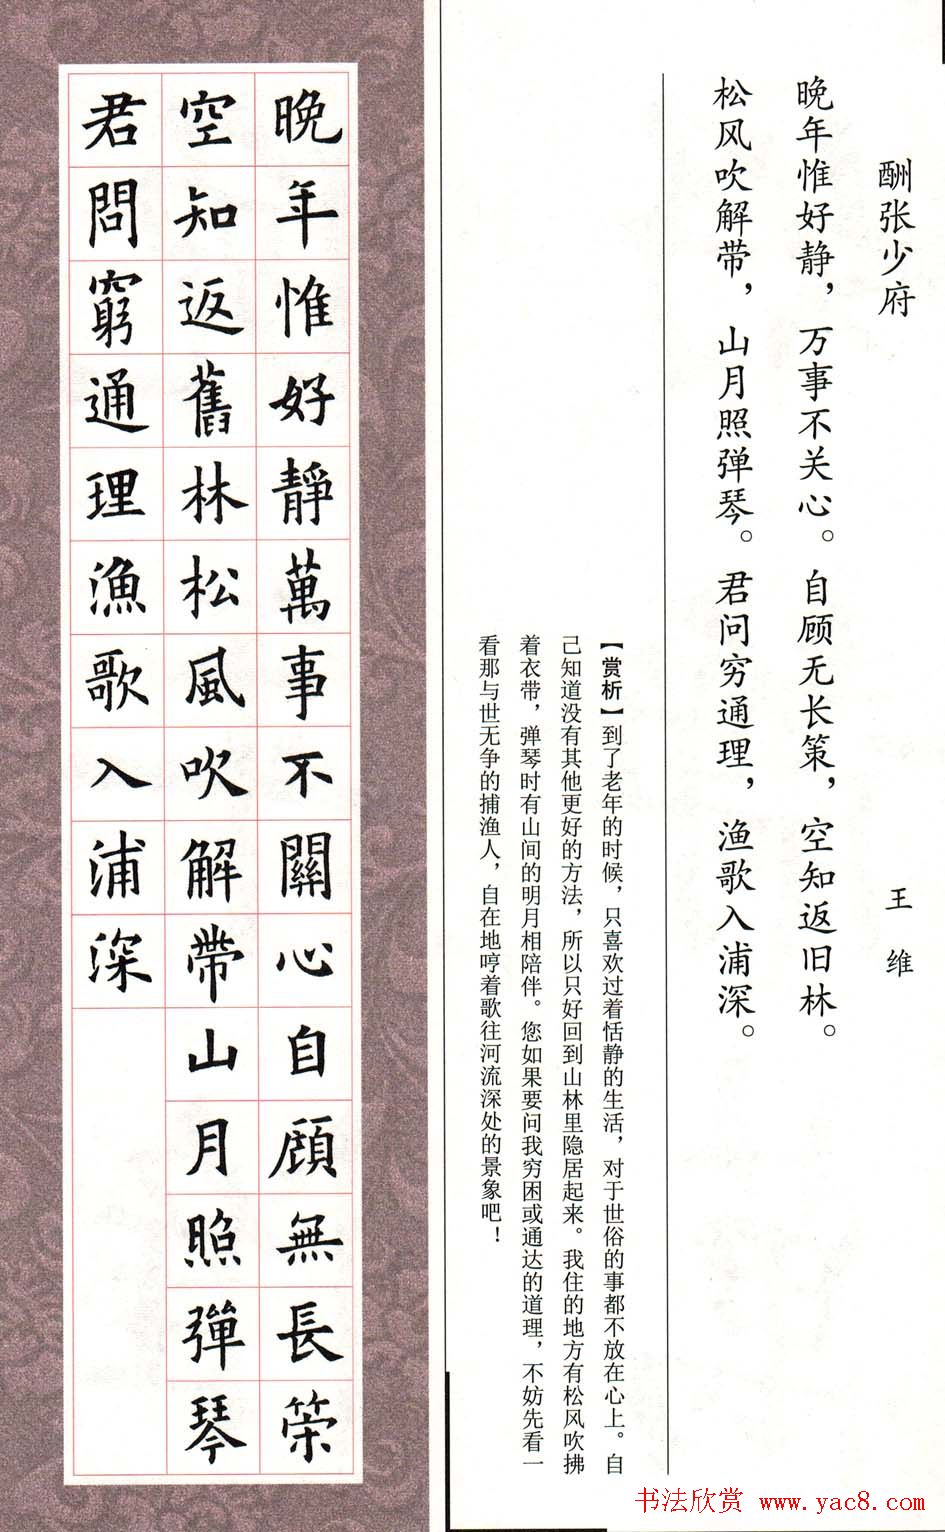 酬张少府
王维
晚年惟好静，万事不关心。自顾无长策，空知返旧林。
松风吹解带，山月照弹琴。君问穷通理，渔歌入浦深。
【赏析】到了老年的时候，只喜欢过着恬静的生活，对于世俗的事都不放在心上。自
己知道没有其他更好的方法，所以只好回到山林里隐居起来。我住的地方有松风吹拂
着衣带，弹琴时有山间的明月相陪伴。您如果要问我穷困或通达的道理，不妨先看一
看那与世无争的捕渔人，自在地哼着歌往河流深处的景象吧！
晚年惟好靜萬事不關心自顧無長策
空知返舊林松風吹解帶山月照彈琴
君問窮通理漁歌入浦深
书法欣赏 www.yac8.com